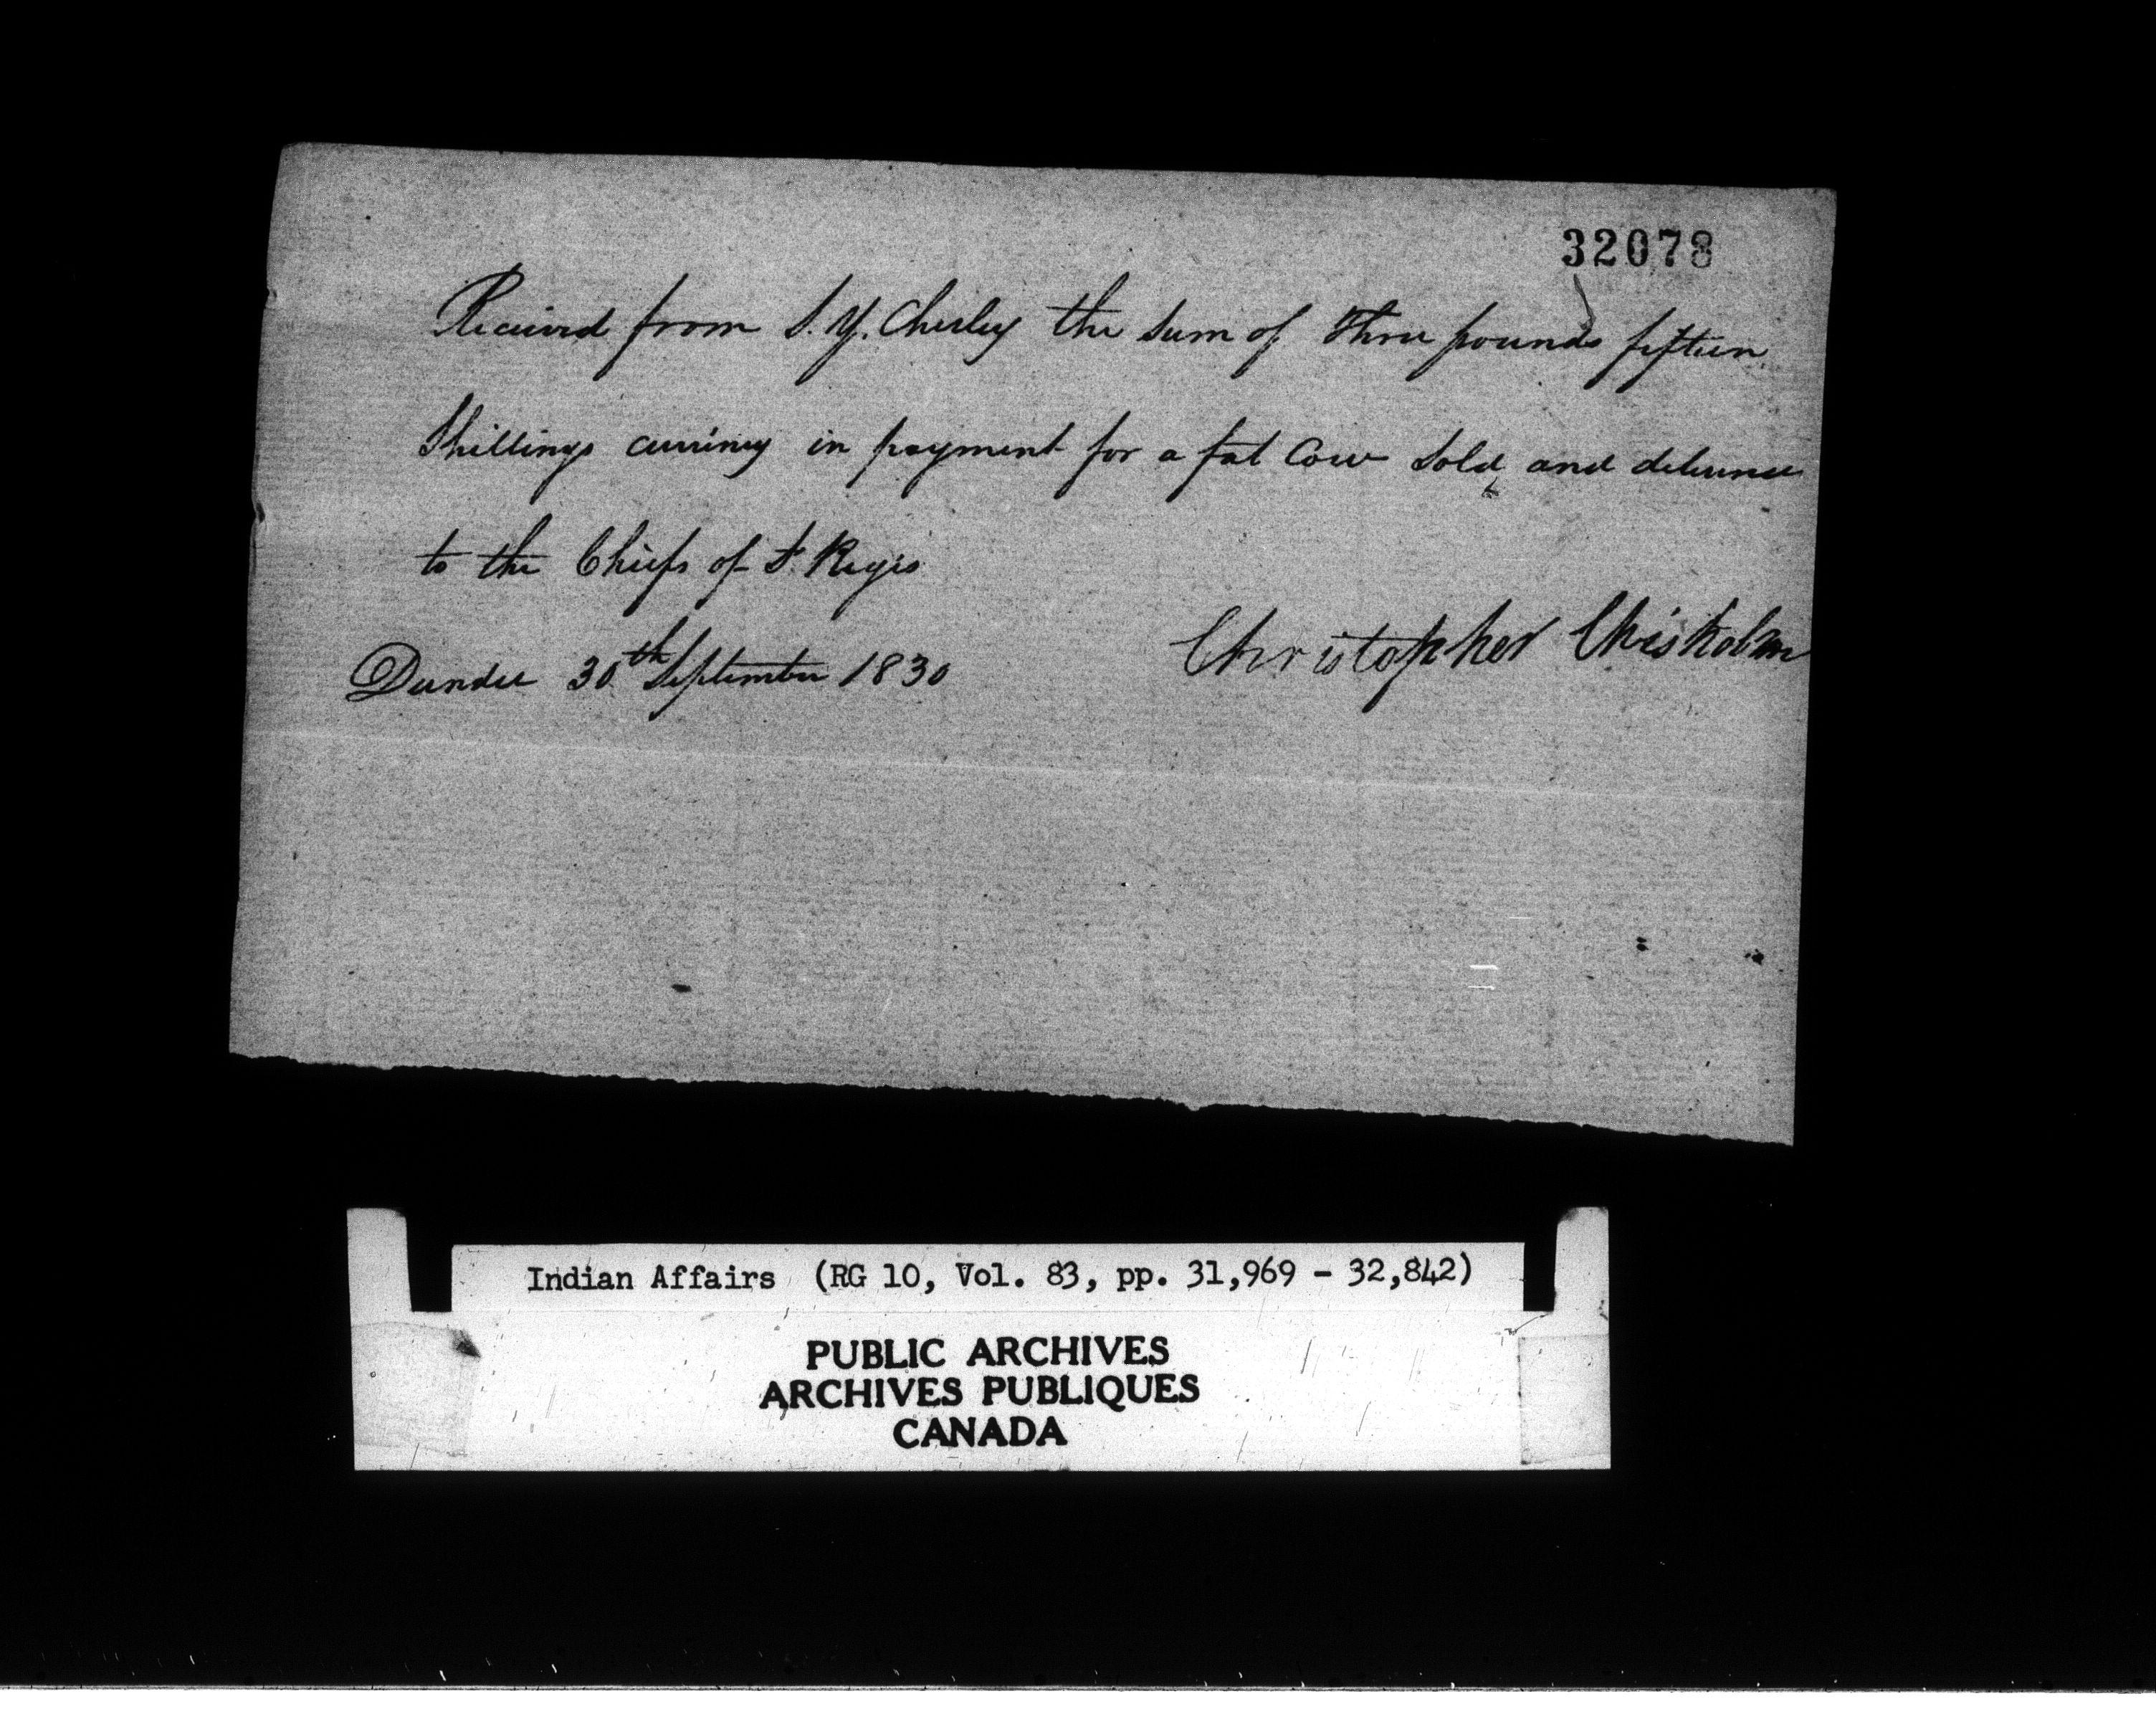 32078
Received from S. Y. Chesley the Sum of Three pounds fifteen
Shillings currency in payment for a fat Cow Sold and delivered
to the Chiefs of St Regis
Dundee 30th September 1830
Christopher Chisholm
Indian Affairs (RG 10, Vol. 83, pp. 31,969 - 32,842)
PUBLIC ARCHIVES
ARCHIVES PUBLIQUES
CANADA